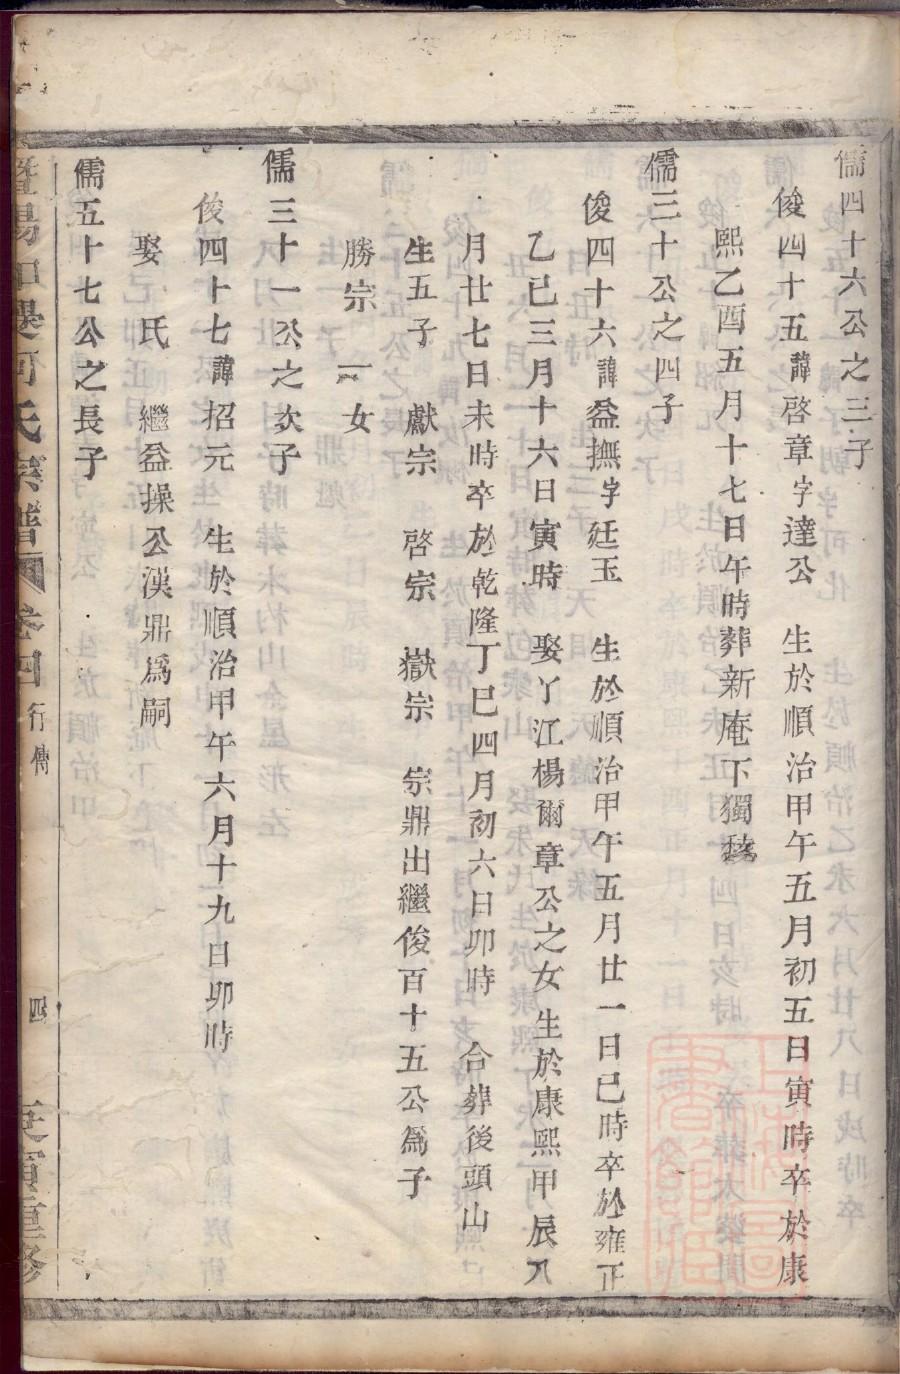 儒四十六公之三子
俊四十五諱啓章字達公 生於順治甲午五月初五日寅時卒於康
熙乙酉五月十七日午時葬新庵下獨
儒三十公之四子
俊四十六諱益撫字廷玉 生於順治甲午五月廿一日巳時卒於雍正
乙巳三月十六日寅時 娶丫江楊爾章公之女生於康熙甲辰八
月廿七日未時卒於乾隆丁巳四月初六日卯時 合葬後頭山
生五子 獻宗 啓宗 嶽宗 宗鼎出繼俊百十五公爲子
勝宗 一女
儒三十一公之次子
俊四十七諱招元 生於順治甲午六月十九日卯時
娶 氏 繼益操公漢鼎爲嗣
儒五十七公之長子
暨陽 何氏宗譜 卷四 行傳 四 寅重修